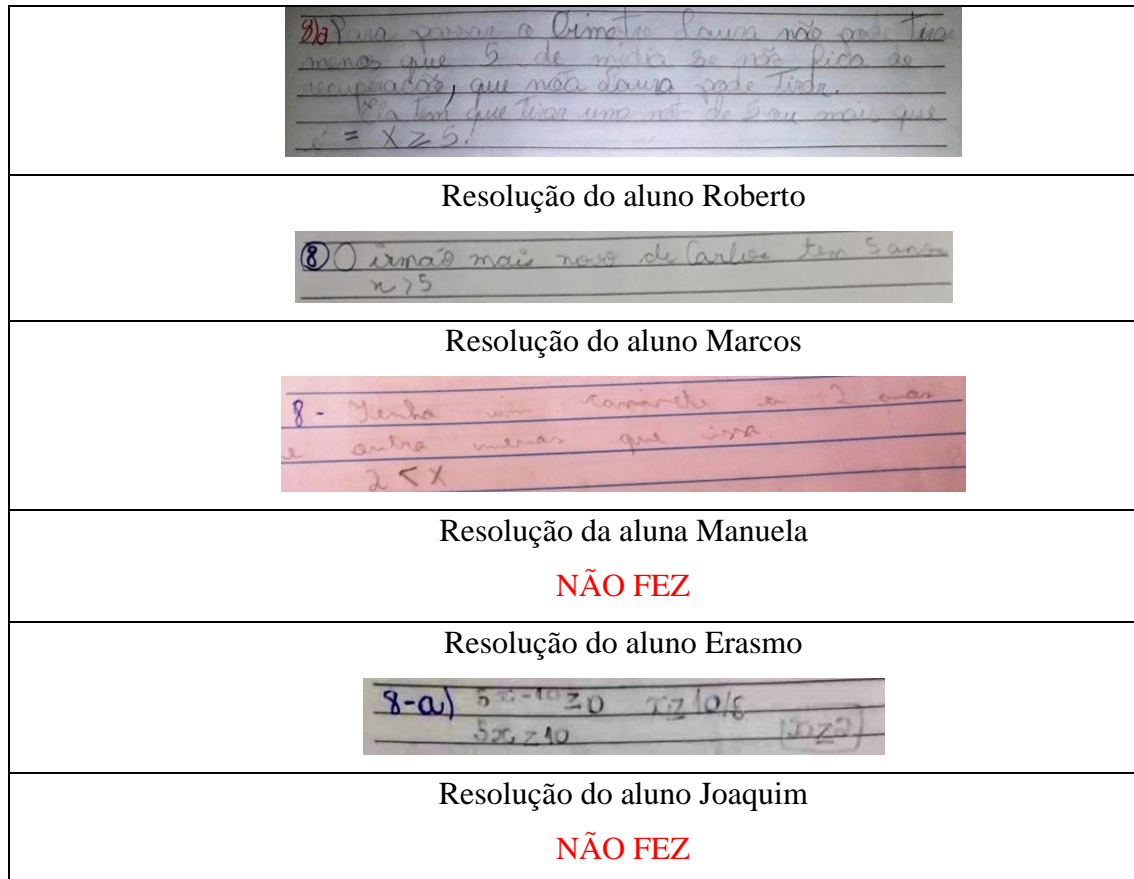 8)a) Para passar o Bimetre Laura não pode Tirar
menos que 5 de média se não fica de
recuperação, que nota Laura pode Tirar.
Ela tem que tirar uma nota de 5 ou mais que
é = X ≥ 5.
Resolução do aluno Roberto
8 O irmão mais novo de Carlos tem 5 anos
x > 5
Resolução do aluno Marcos
8 - Tenha um a 2
e outra menas que issa.
2 < X
Resolução da aluna Manuela
NÃO FEZ
Resolução do aluno Erasmo
8-a) 5x-10≥0 x≥10/5
5x≥10 x≥2
Resolução do aluno Joaquim
NÃO FEZ